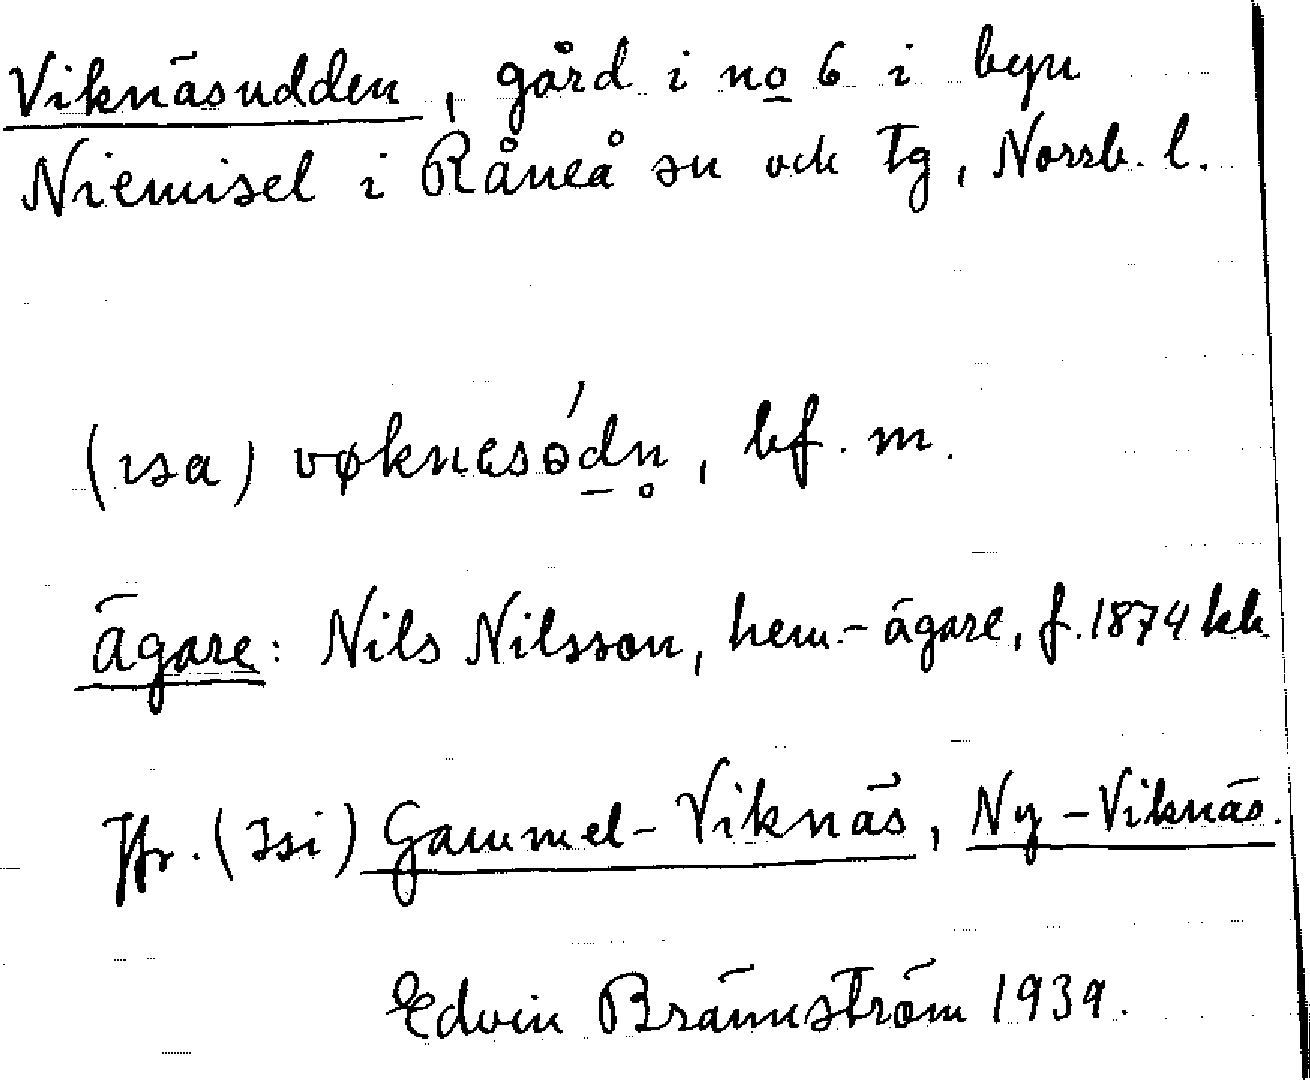 Viknäsudden, gård i no 6 i byn
Niemisel i Råneå sn och tg, Norrb. l.
(ısa) vøknɛsɵ́dn̥, bf. m.
ägare: Nils Nilsson, hem.-ägare, f. 1874 kk
Jfr. (Isi) Gammel-Viknäs, Ny-Viknäs.
Edvin Brännström 1939.